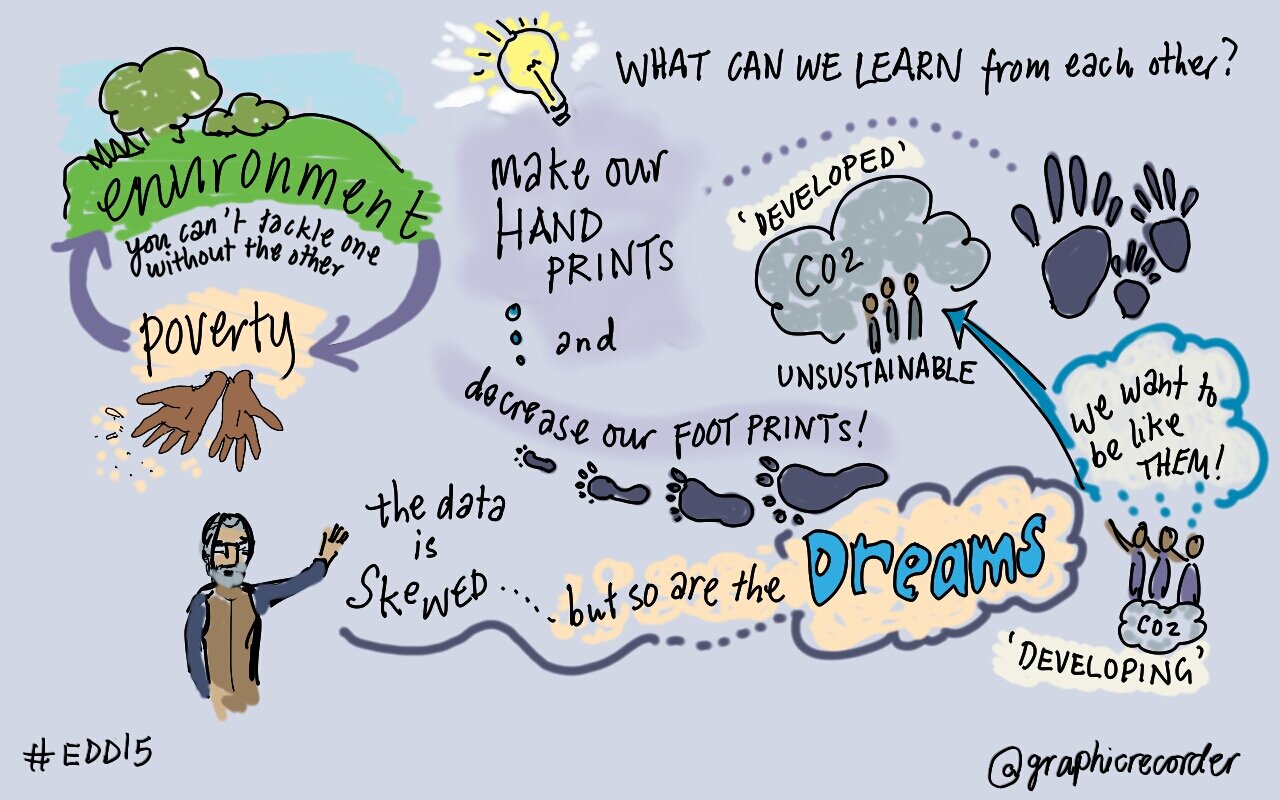 WHAT CAN WE LEARN from each other?
environment
you can't tackle one
without the other
poverty
make our
HAND
PRINTS
and
decrease our FOOT PRINTS!
'DEVELOPED'
CO2
UNSUSTAINABLE
we want to
be like
THEM!
CO2
'DEVELOPING'
the data
is
SKEWED.....
but so are the Dreams
#EDD15
@graphicrecorder